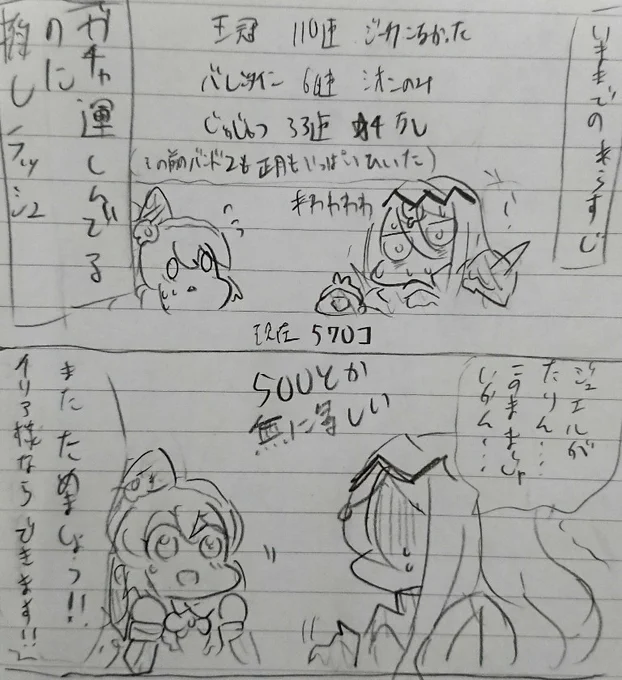 いままでのあらすじ
王冠 110連 ジークこなかった
バレンタイン 6連 シオンのみ
じゅじゅつ 33連 ★4なし
(この前のバンドスも正月もいっぱいひいた)
ガチャ運しんでる
のに
推しラッシュ
あわわわわ
現在 570コ
ジュエルが
たりん…
このままじゃ
いかん…
500とか
無に等しい
また ためましょう!!
イリア様ならできます!!